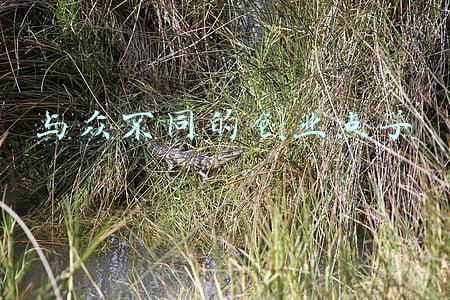 与众不同的创业点子